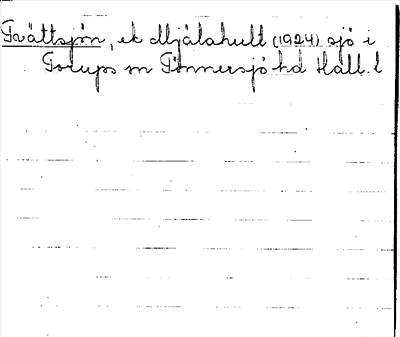 Tvättsjön, ek Mjälahult (1924) sjö i
Torups sn Tönnersjö hd Hall. l